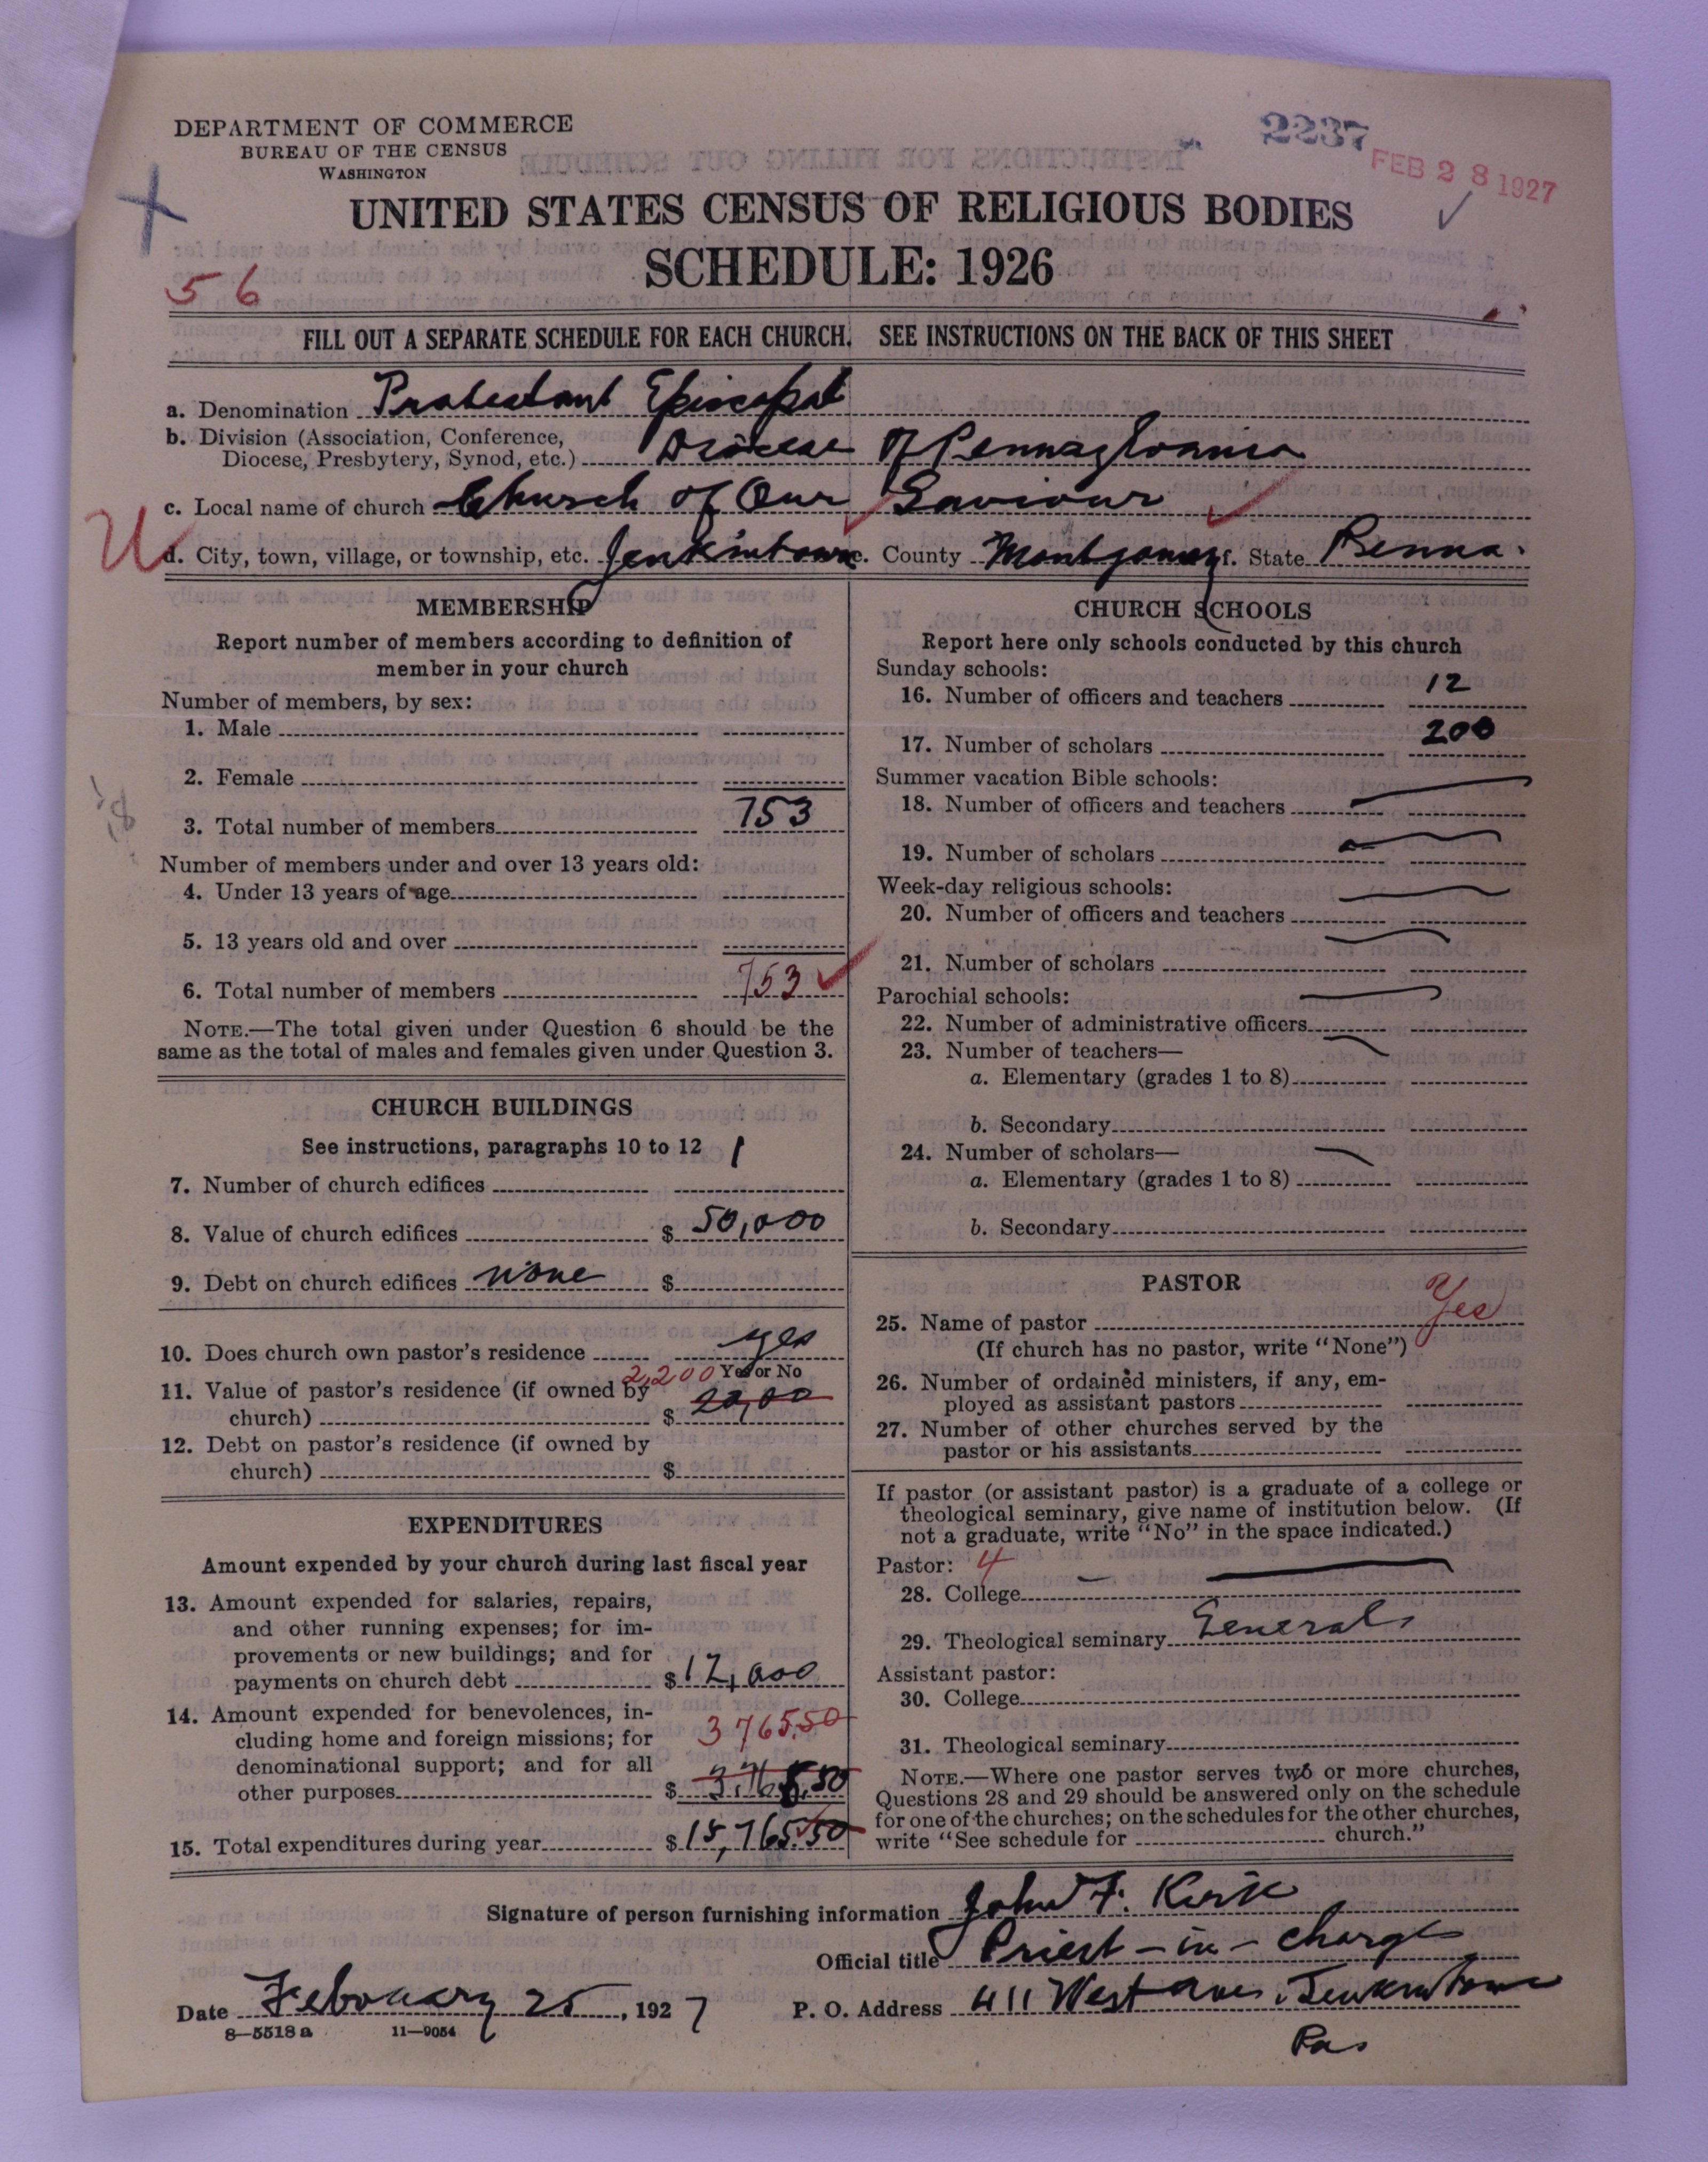 DEPARTMENT OF COMMERCE
BUREAU OF THE CENSUS
WASHINGTON
2237
FEB 28 1927
UNITED STATES CENSUS OF RELIGIOUS BODIES
SCHEDULE: 1926
56
FILL OUT A SEPARATE SCHEDULE FOR EACH CHURCH. SEE INSTRUCTIONS ON THE BACK OF THIS SHEET
a. Denomination Protestant Episcopal
b. Division (Association, Conference,
Diocese, Presbytery, Synod, etc.) Diocese of Pennsylvania
c. Local name of church Church of Our Saviour
U
d. City, town, village, or township, etc. Jenkintown e. County Montgomery f. State Penna.
MEMBERSHIP
Report number of members according to definition of
member in your church
Number of members, by sex:
1. Male
2. Female
3. Total number of members 753
Number of members under and over 13 years old:
4. Under 13 years of age
5. 13 years old and over
6. Total number of members 753
NOTE.—The total given under Question 6 should be the
same as the total of males and females given under Question 3.
CHURCH BUILDINGS
See instructions, paragraphs 10 to 12
1
7. Number of church edifices
8. Value of church edifices $ 50,000
9. Debt on church edifices none $
10. Does church own pastor's residence yes
Yes or No
2,200
11. Value of pastor's residence (if owned by
church) $ 22,00
12. Debt on pastor's residence (if owned by
church) $
EXPENDITURES
Amount expended by your church during last fiscal year
13. Amount expended for salaries, repairs,
and other running expenses; for im-
provements or new buildings; and for
payments on church debt $ 12,000
14. Amount expended for benevolences, in-
cluding home and foreign missions; for
3765.50
denominational support; and for all
other purposes $ 3,765.50
15. Total expenditures during year $ 15,765.50
CHURCH SCHOOLS
Report here only schools conducted by this church
Sunday schools:
16. Number of officers and teachers 12
17. Number of scholars 200
Summer vacation Bible schools:
18. Number of officers and teachers
19. Number of scholars
Week-day religious schools:
20. Number of officers and teachers
21. Number of scholars
Parochial schools:
22. Number of administrative officers
23. Number of teachers—
a. Elementary (grades 1 to 8)
b. Secondary
24. Number of scholars—
a. Elementary (grades 1 to 8)
b. Secondary
PASTOR
25. Name of pastor Yes
(If church has no pastor, write "None")
26. Number of ordained ministers, if any, em-
ployed as assistant pastors
27. Number of other churches served by the
pastor or his assistants
If pastor (or assistant pastor) is a graduate of a college or
theological seminary, give name of institution below. (If
not a graduate, write "No" in the space indicated.)
Pastor: 4
28. College
29. Theological seminary General
Assistant pastor:
30. College
31. Theological seminary
NOTE.—Where one pastor serves two or more churches,
Questions 28 and 29 should be answered only on the schedule
for one of the churches; on the schedules for the other churches,
write "See schedule for church."
Signature of person furnishing information John F. Kirk
Official title Priest-in-charge
Date February 25, 1927 P. O. Address 411 West Ave. Jenkintown
Pa.
8—5518 a 11—9054